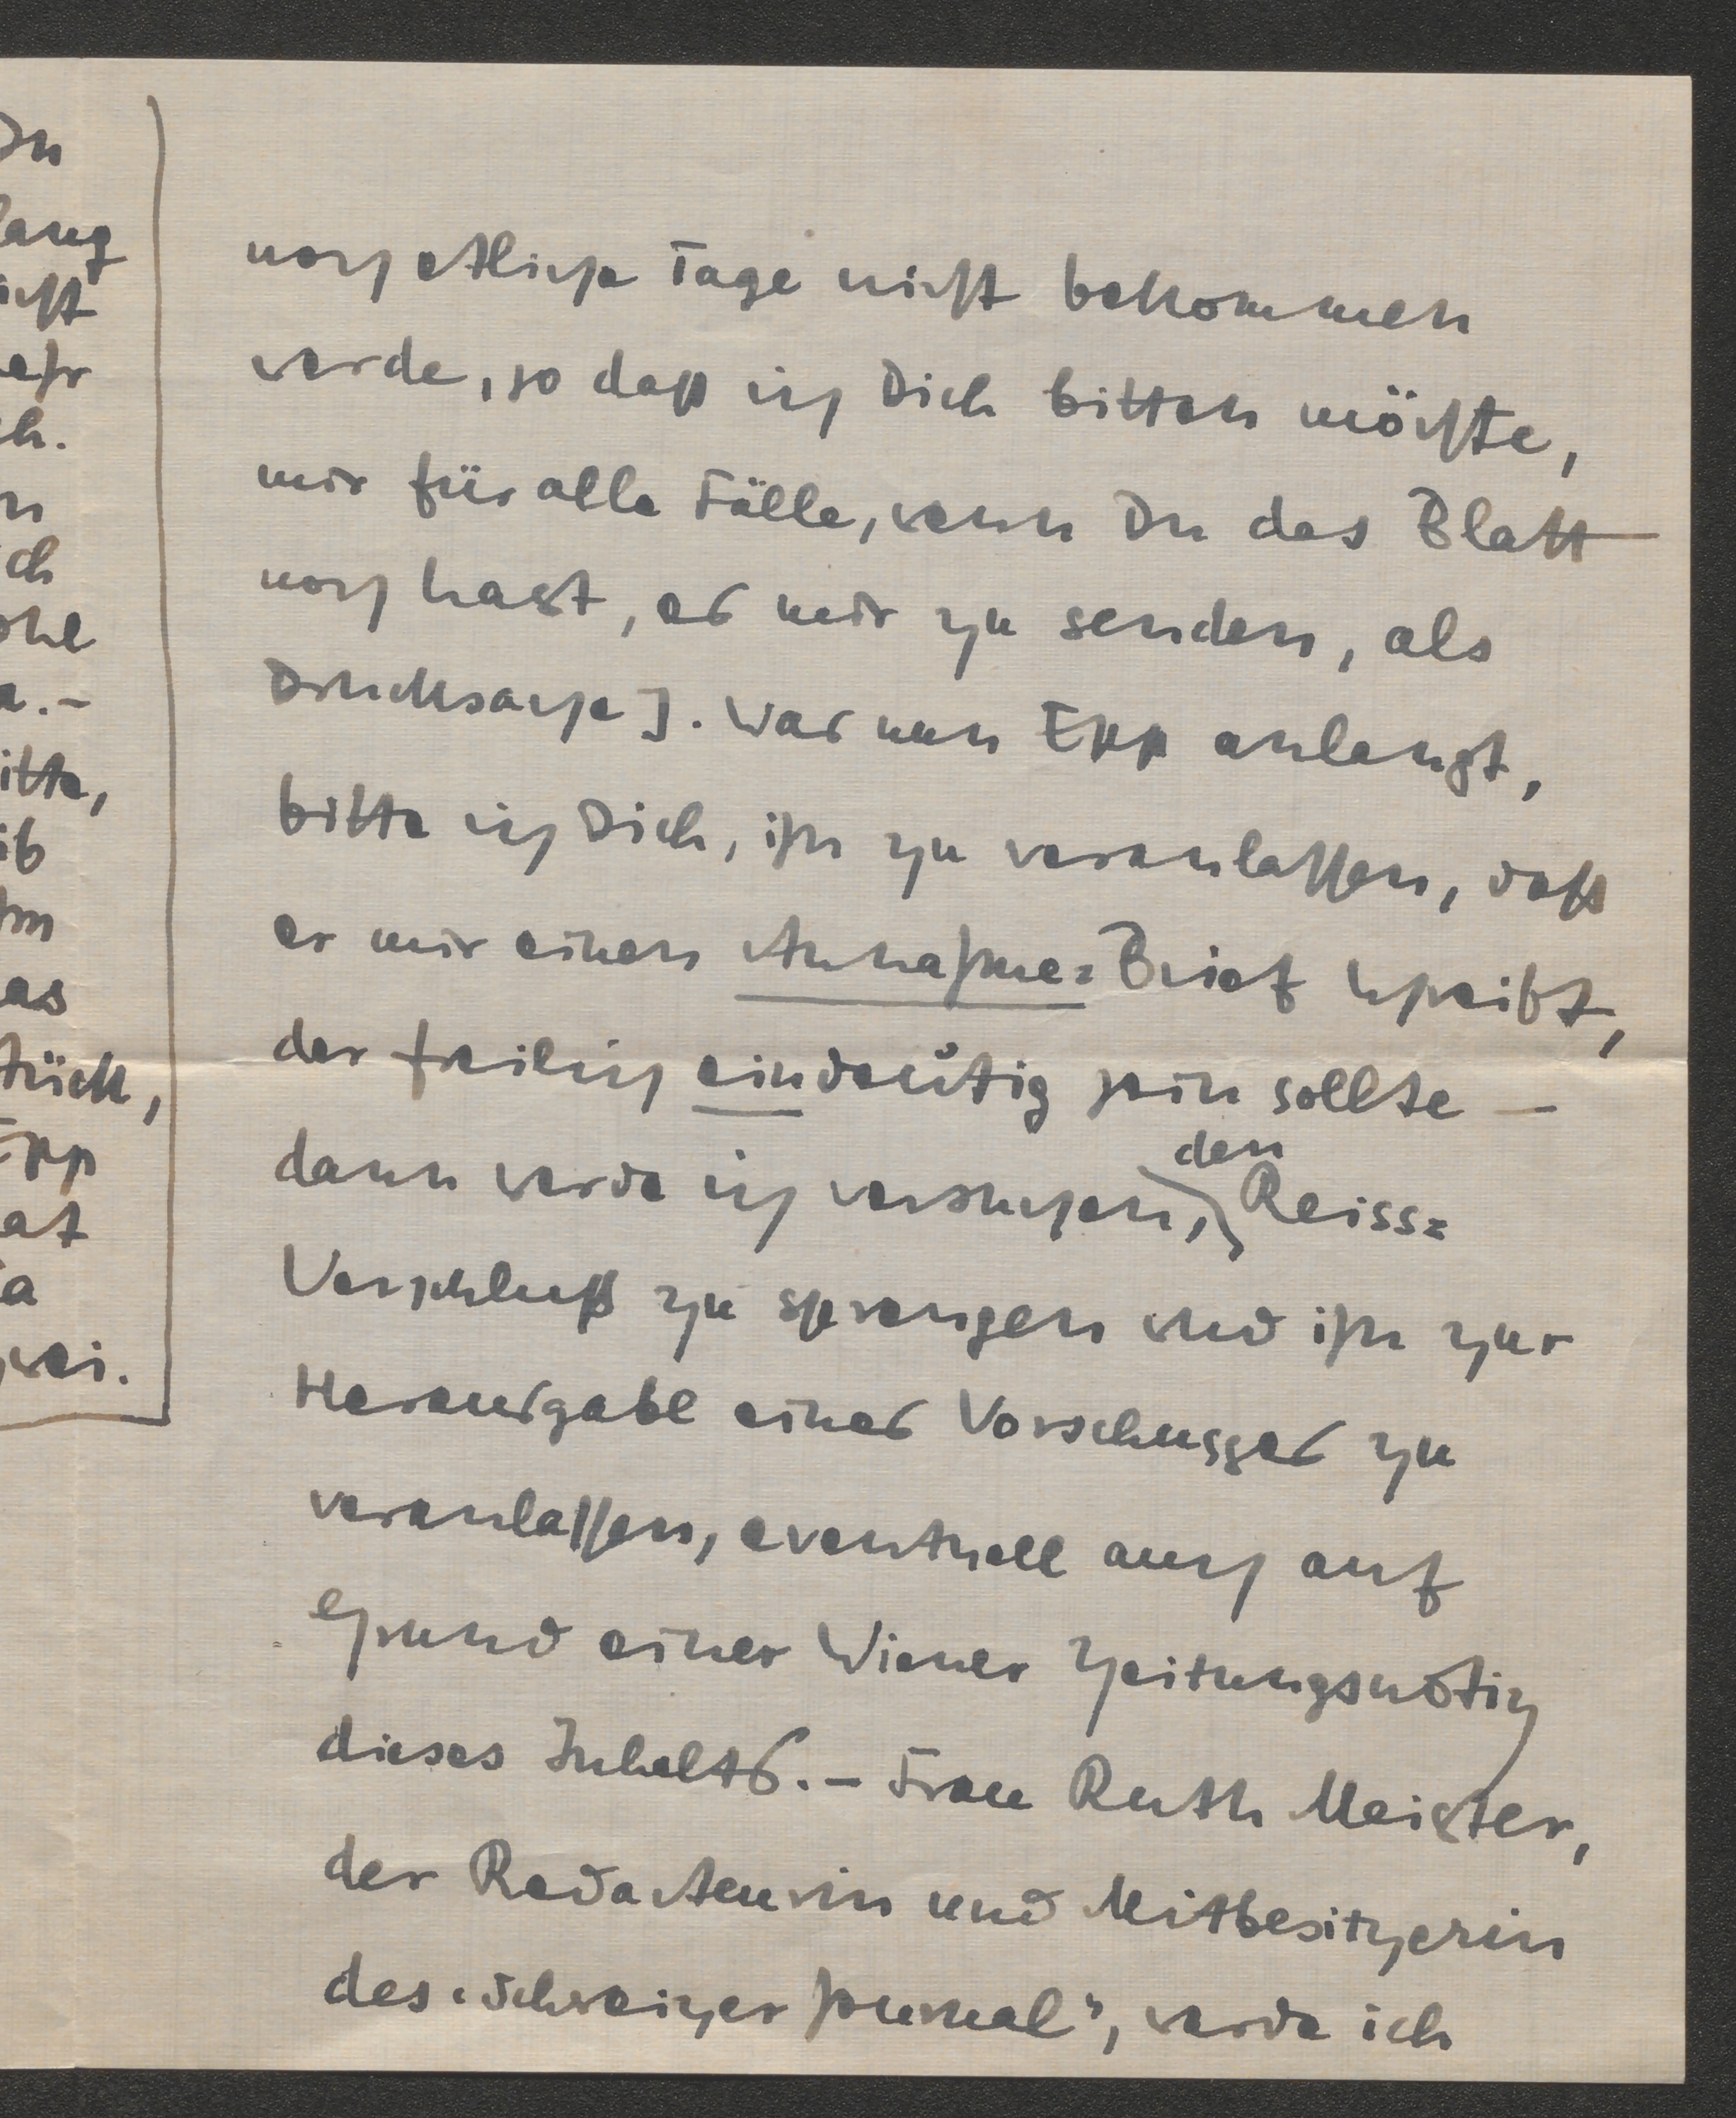 Du
lang
icht
ehr
ch.
n
ch
ohl
a.-
itte,
ib
hm
as
trück,
Epp
at
a
wei.
noch etliche Tage nicht bekommen
werde, so daß ich Dich bitten möchte,
mir für alle Fälle, wenn Du das Blatt
noch hast, es mir zu senden, als
Drucksache]. Was nun Epp anlangt,
bitte ich Dich, ihn zu veranlassen, daß
er mir einen Annahme=Brief schreibt,
der freilich eindeutig sein sollte —
dann werde ich versuchen, den Reiss=
Verschluß zu sprengen und ihn zur
Herausgabe eines Vorschusses zu
veranlassen, eventuell auch auf
Grund einer Wiener Zeitungsnotiz
dieses Inhalts. – Frau Ruth Meister,
der Redacteurin und Mitbesitzerin
des „Schweizer Journal“, werde ich